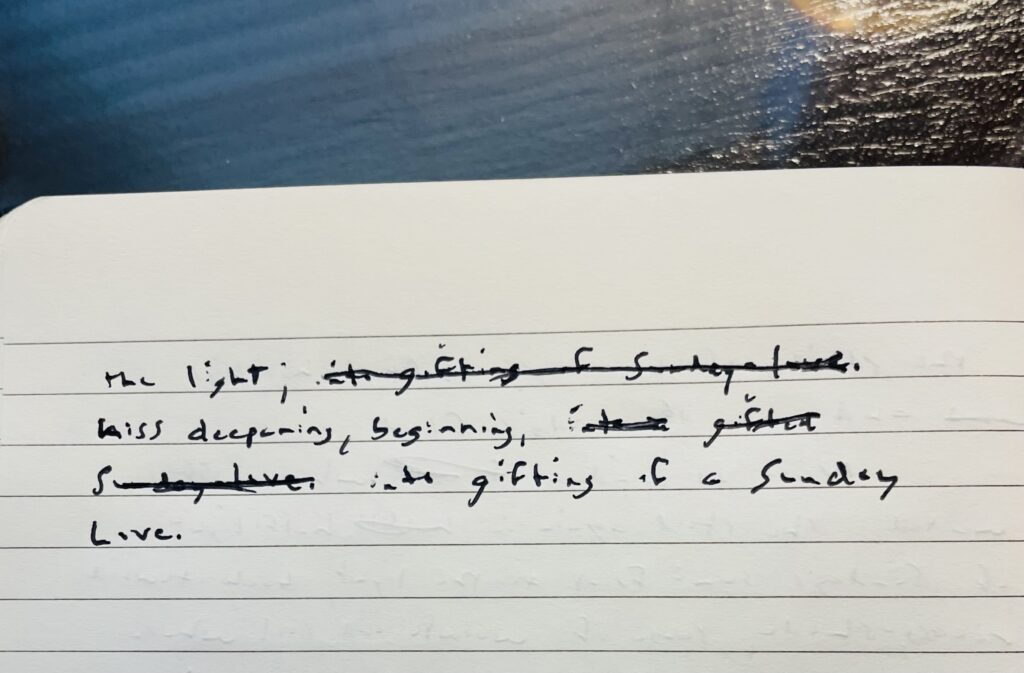 the light, into gifting of Sunday love.
kiss deepening, beginning, into gifted
Sunday love. into gifting of a Sunday
Love.